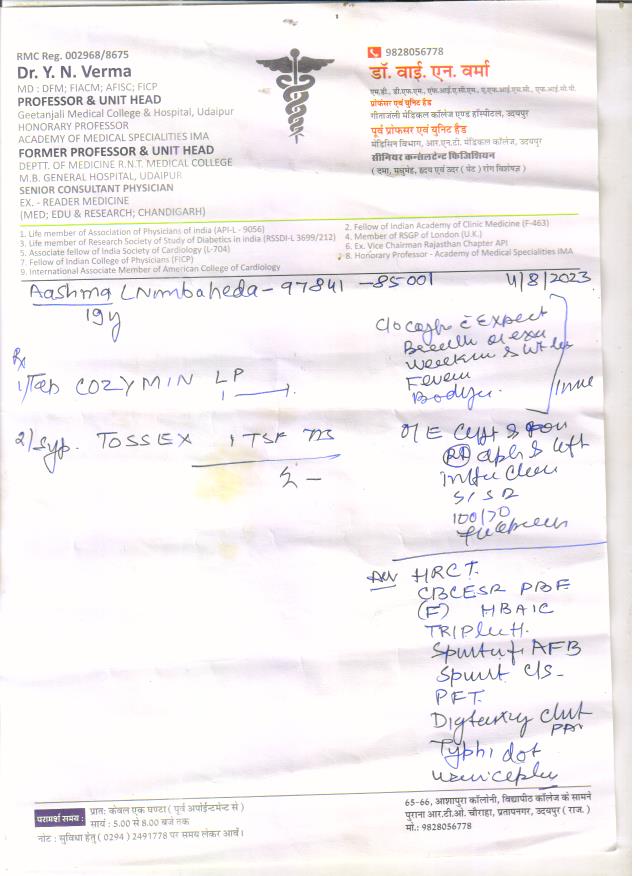 RMC Reg. 002968/8675
Dr. Y. N. Verma
MD : DFM; FIACM; AFISC; FICP
PROFESSOR & UNIT HEAD
Geetanjali Medical College & Hospital, Udaipur
HONORARY PROFESSOR
ACADEMY OF MEDICAL SPECIALITIES IMA
FORMER PROFESSOR & UNIT HEAD
DEPTT. OF MEDICINE R.N.T. MEDICAL COLLEGE
M.B. GENERAL HOSPITAL, UDAIPUR
SENIOR CONSULTANT PHYSICIAN
EX. - READER MEDICINE
(MED; EDU & RESEARCH; CHANDIGARH)
9828056778
डॉ. वाई. एन. वर्मा
एम.डी., डी.एफ.एम., एफ.आई.ए.सी.एम., ए.एफ.आई.एस.सी., एफ.आई.सी.पी.
प्रोफेसर एवं यूनिट हैड
गीतांजली मेडिकल कॉलेज एण्ड हॉस्पिटल, उदयपुर
पूर्व प्रोफेसर एवं यूनिट हैड
मेडिसिन विभाग, आर.एन.टी. मेडिकल कॉलेज, उदयपुर
सीनियर कन्सलटेन्ट फिजिशियन
( दमा, मधुमेह, हृदय एवं उदर ( पेट ) रोग विशेषज्ञ )
1. Life member of Association of Physicians of india (API-L - 9056)
2. Fellow of Indian Academy of Clinic Medicine (F-463)
3. Life member of Research Society of Study of Diabetics in india (RSSDI-L 3699/212)
4. Member of RSGP of London (U.K.)
5. Associate fellow of India Society of Cardiology (L-704)
6. Ex. Vice Chairman Rajasthan Chapter API
7. Fellow of Indian College of Physicians (FICP)
8. Honorary Professor - Academy of Medical Specialities IMA
9. International Associate Member of American College of Cardiology
Aashma Nimbaheda - 97841 - 85001 4/8/2023
19 y
Rx
1/ Tab COZYMIN LP
2/ Syp. TOSSEX 1 TSF
C/o Cough c Expect
Fever
O/E
100/70
Adv HRCT.
CBC ESR PBF
(F) HBA1C
TRIPLE H.
Sputum f AFB
Sputum C/S
PFT.
Typhi dot
परामर्श समय :
प्रातः केवल एक घण्टा ( पूर्व अपोईन्टमेन्ट से )
सायं : 5.00 से 8.00 बजे तक
नोट : सुविधा हेतु ( 0294 ) 2491778 पर समय लेकर आवें।
65-66, आशापुरा कॉलोनी, विद्यापीठ कॉलेज के सामने
पुराना आर.टी.ओ. चौराहा, प्रतापनगर, उदयपुर ( राज. )
मो.: 9828056778